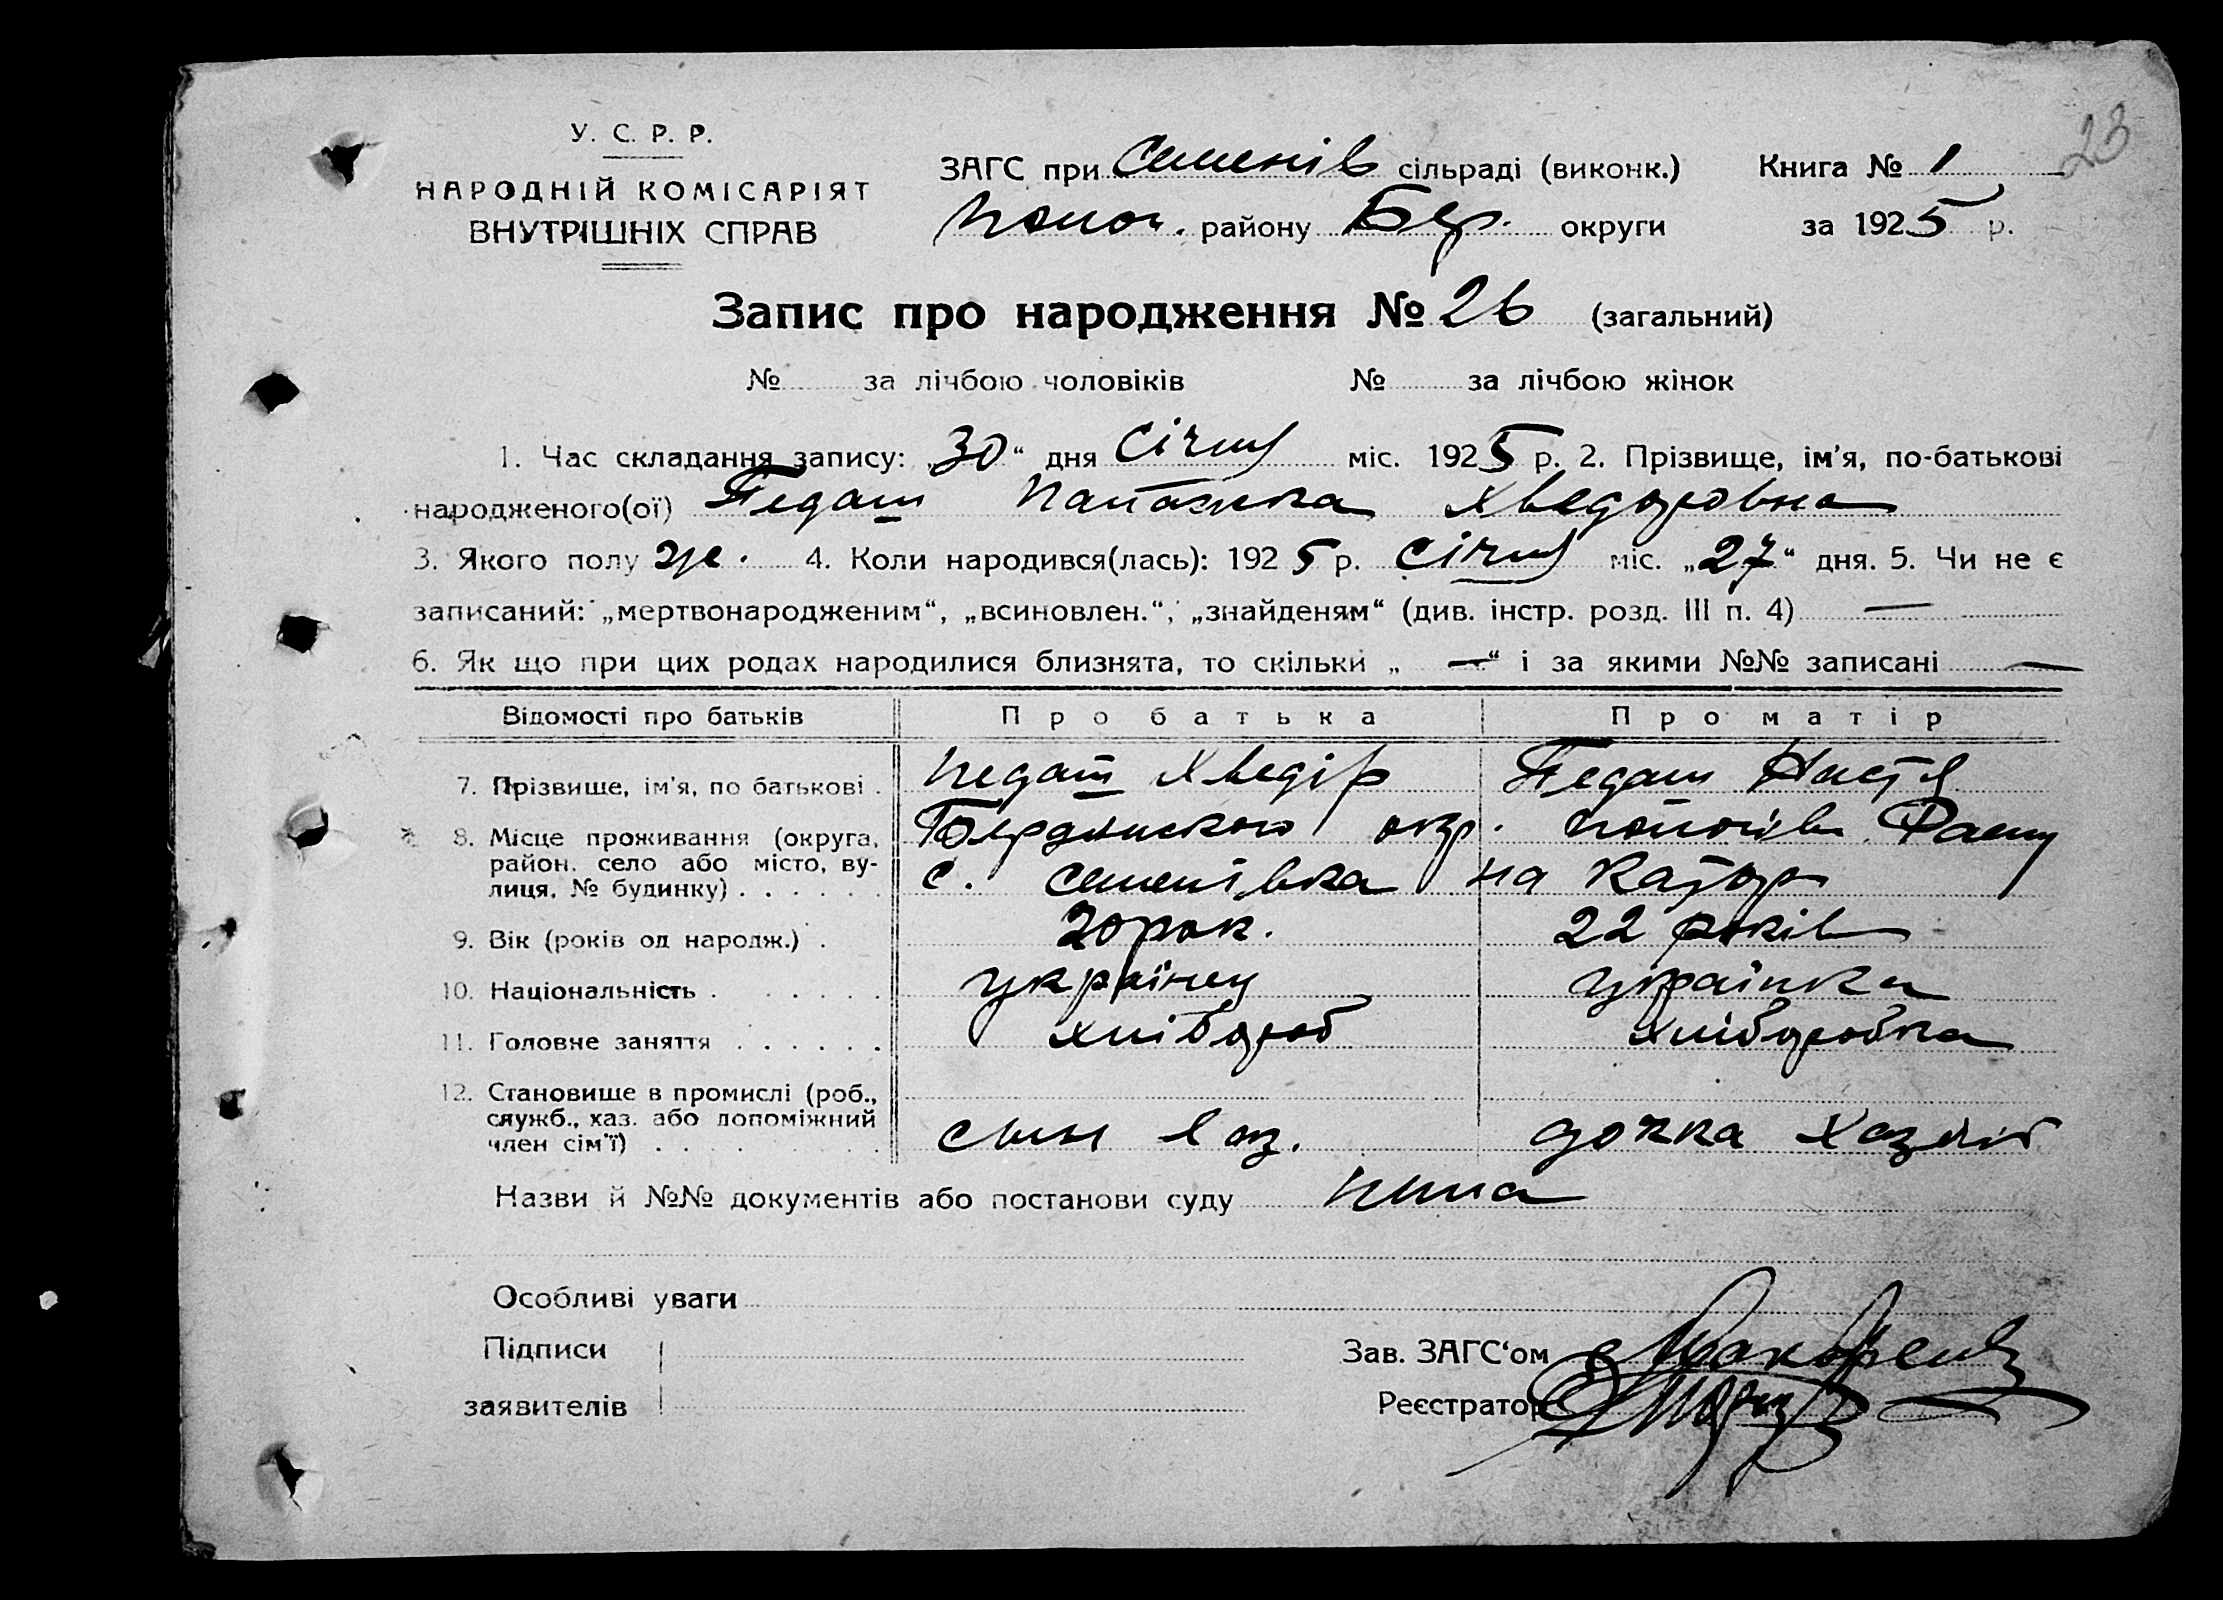 23
У. С. Р. Р.
НАРОДНІЙ КОМІСАРІЯТ
ВНУТРІШНІХ СПРАВ
ЗАГС при Семенів сільраді (виконк.) Книга № 1
району Бер. округи за 1925 р.
Запис про народження № 26 (загальний)
№ за лічбою чоловіків № за лічбою жінок
1. Час складання запису: „30“ дня Січня міс. 1925 р. 2. Прізвище, ім'я, по-батькові
народженого(ої) Педаш Наташка Хведоровна
3. Якого полу же. 4. Коли народився(лась): 1925 р. Січня міс. „27“ дня. 5. Чи не є
записаний: „мертвонародженим“, „всиновлен.“, „знайденям“ (див. інстр. розд. III п. 4) —
6. Як що при цих родах народилися близнята, то скільки „ — “ і за якими №№ записані —
Відомості про батьків Про батька Про матір
7. Прізвище, ім'я, по батькові . Педаш Хведір Педаш Настя
8. Місце проживання (округа, район, село або місто, вулиця, № будинку) . . . . . . Бердянского окр.
с. Семенівка на
9. Вік (років од народж.) . 20 рок. 22 років
10. Національність . . . . . . українец українка
11. Головне заняття . . . . . . хлібороб хліборобка
12. Становище в промислі (роб., служб., хаз. або допоміжний член сім'ї) . . . . . . сын хаз. дочка
Назви й №№ документів або постанови суду нима
Особливі уваги
Підписи
заявителів
Зав. ЗАГС‘ом
Реєстратор